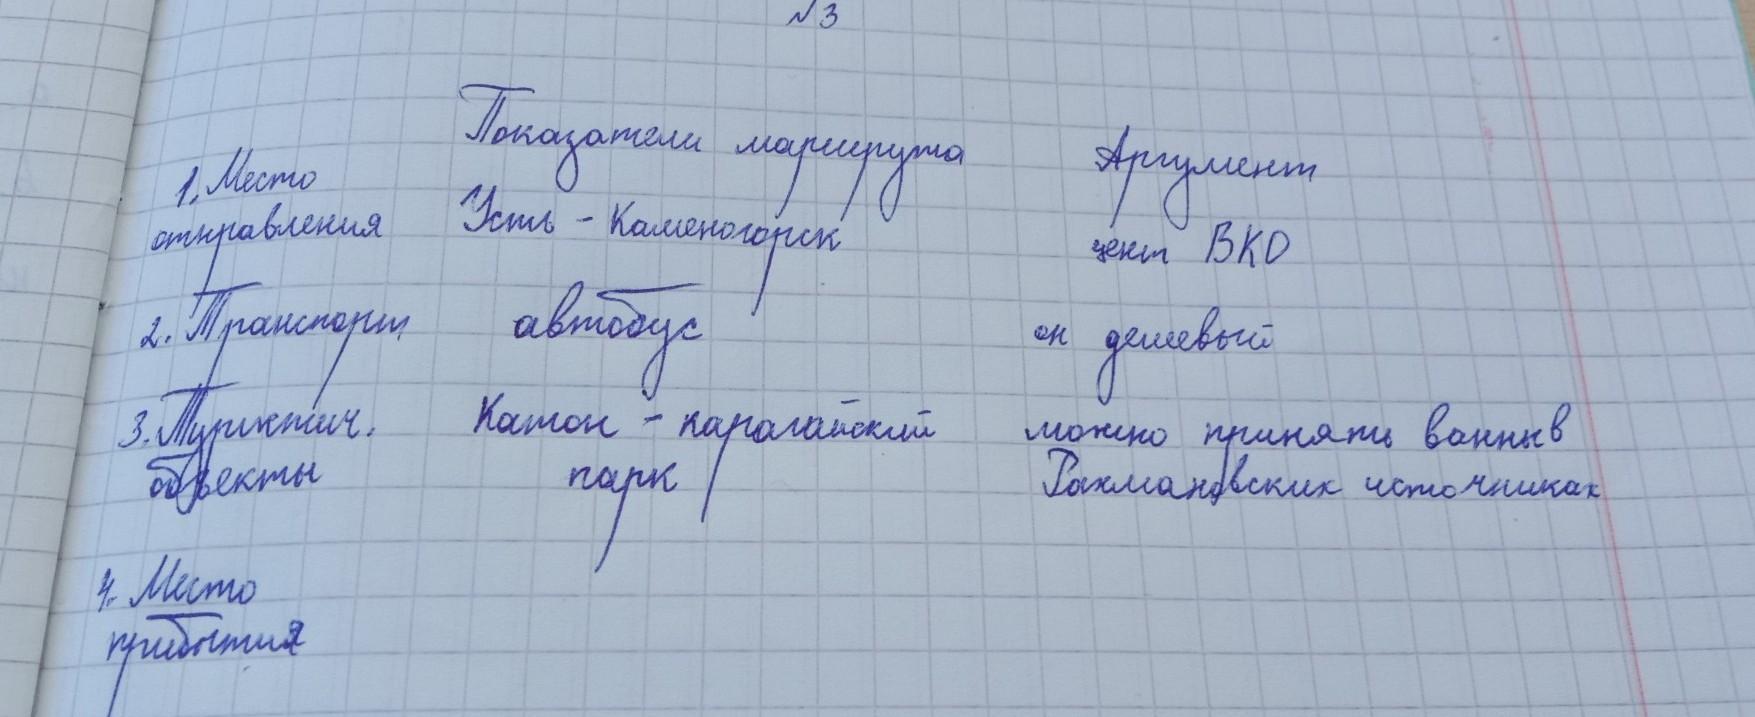 №3
Показатели маршрута Аргумент
1. Место
отправления Усть - Каменогорск цент ВКО
2. Транспорт автобус он дешевый
3. Туристич. Катон - карагайский можно принять ванны в
объекты парк Рахмановских источниках
4. Место
прибытия